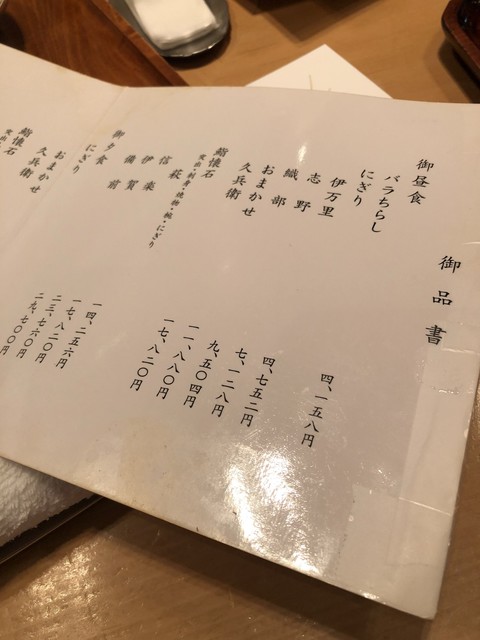 御品書
御昼食
バラちらし 四、一五八円
にぎり
伊万里 四、七五二円
志野 七、一二八円
織部 九、五〇四円
おまかせ 一一、八八〇円
久兵衛 一七、八二〇円
鮨懐石
突出・刺身・焼物・椀・にぎり
御夕食
にぎり
一四、二五六円
一七、八二〇円
おまかせ 二三、七六〇円
久兵衛 二九、七〇〇円
鮨懐石